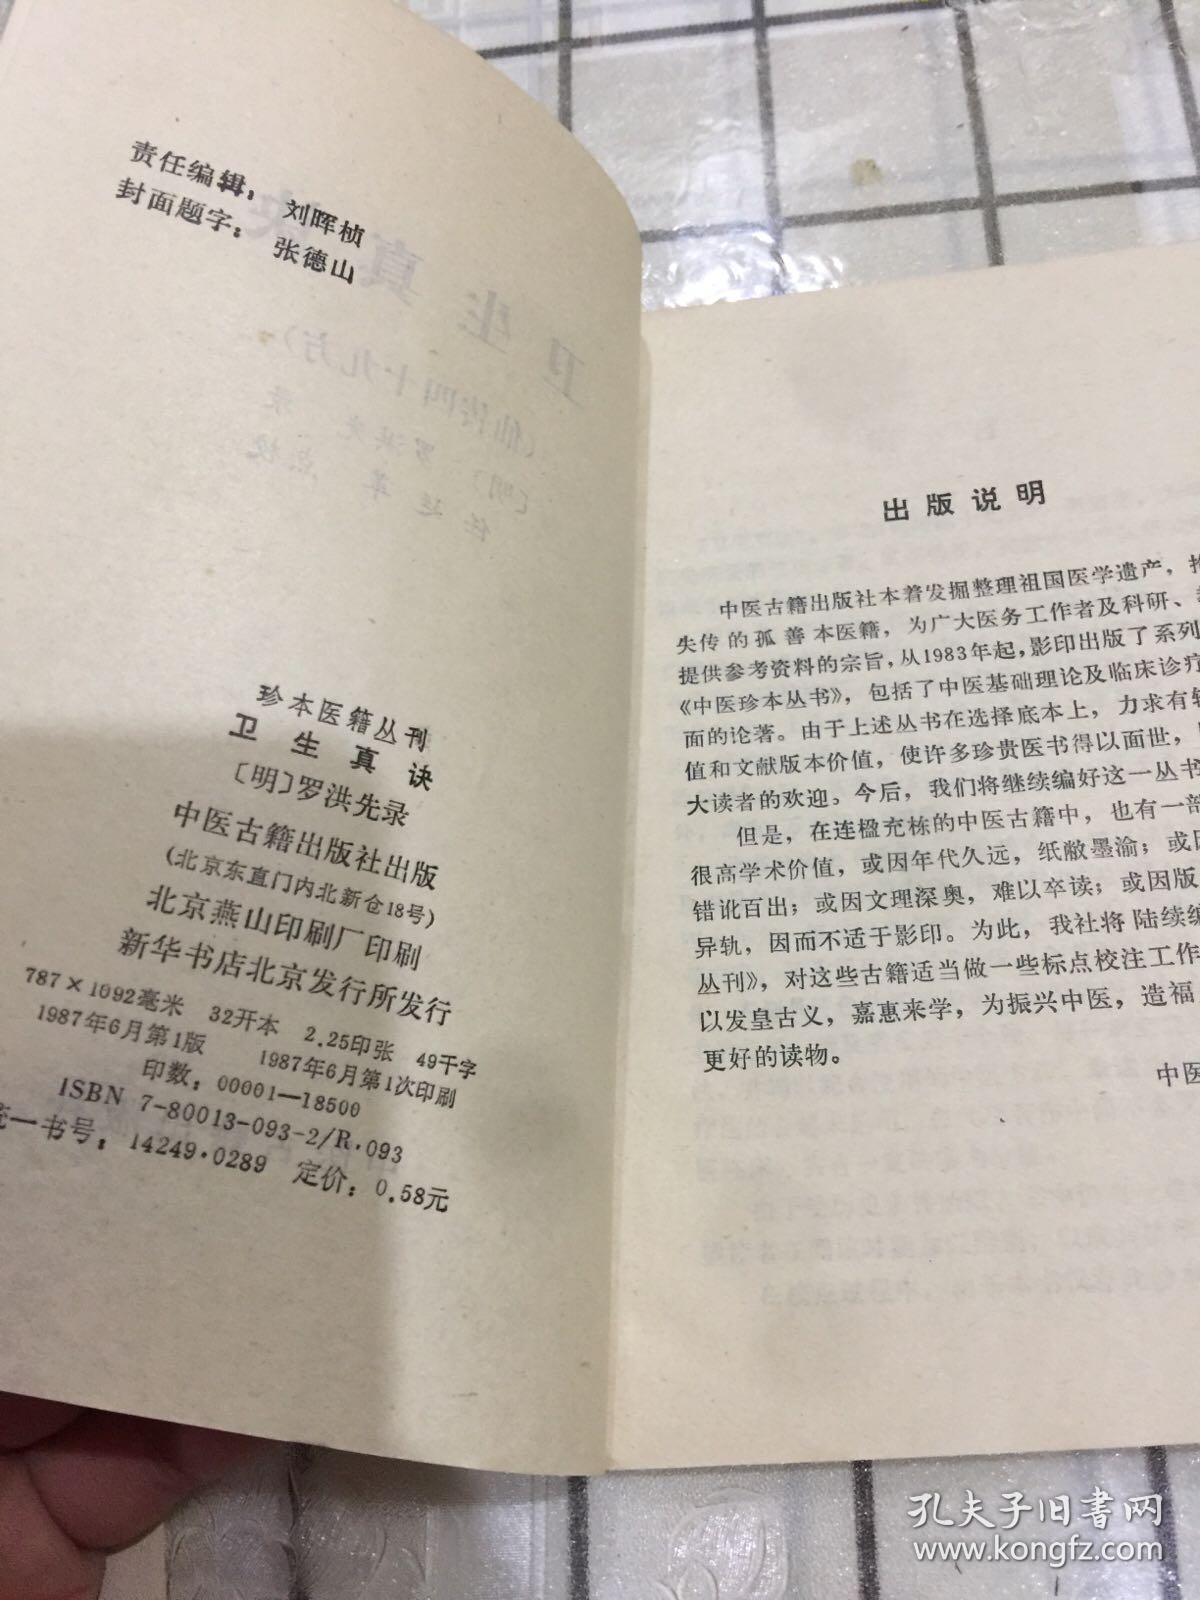 责任编辑：刘晖桢
封面题字：张德山
珍本医籍丛刊
卫生真诀
〔明〕罗洪先录
中医古籍出版社出版
(北京东直门内北新仓18号)
北京燕山印刷厂印刷
新华书店北京发行所发行
787×1092毫米 32开本 2.25印张 49千字
1987年6月第1版 1987年6月第1次印刷
印数：00001—18500
ISBN 7-80013-093-2/R·093
统一书号：14249·0289 定价：0.58元
出版说明
中医古籍出版社本着发掘整理祖国医学遗产，
失传的孤善本医籍，为广大医务工作者及科研、
提供参考资料的宗旨，从1983年起，影印出版了系列
《中医珍本丛书》，包括了中医基础理论及临床诊疗
面的论著。由于上述丛书在选择底本上，力求有较
值和文献版本价值，使许多珍贵医书得以面世，
大读者的欢迎。今后，我们将继续编好这一丛书
但是，在连楹充栋的中医古籍中，也有一部
很高学术价值，或因年代久远，纸敝墨渝；或因
错讹百出；或因文理深奥，难以卒读；或因版
异轨，因而不适于影印。为此，我社将陆续编
丛刊》，对这些古籍适当做一些标点校注工作
以发皇古义，嘉惠来学，为振兴中医，造福
更好的读物。
中医
孔夫子旧书网
www.kongfz.com